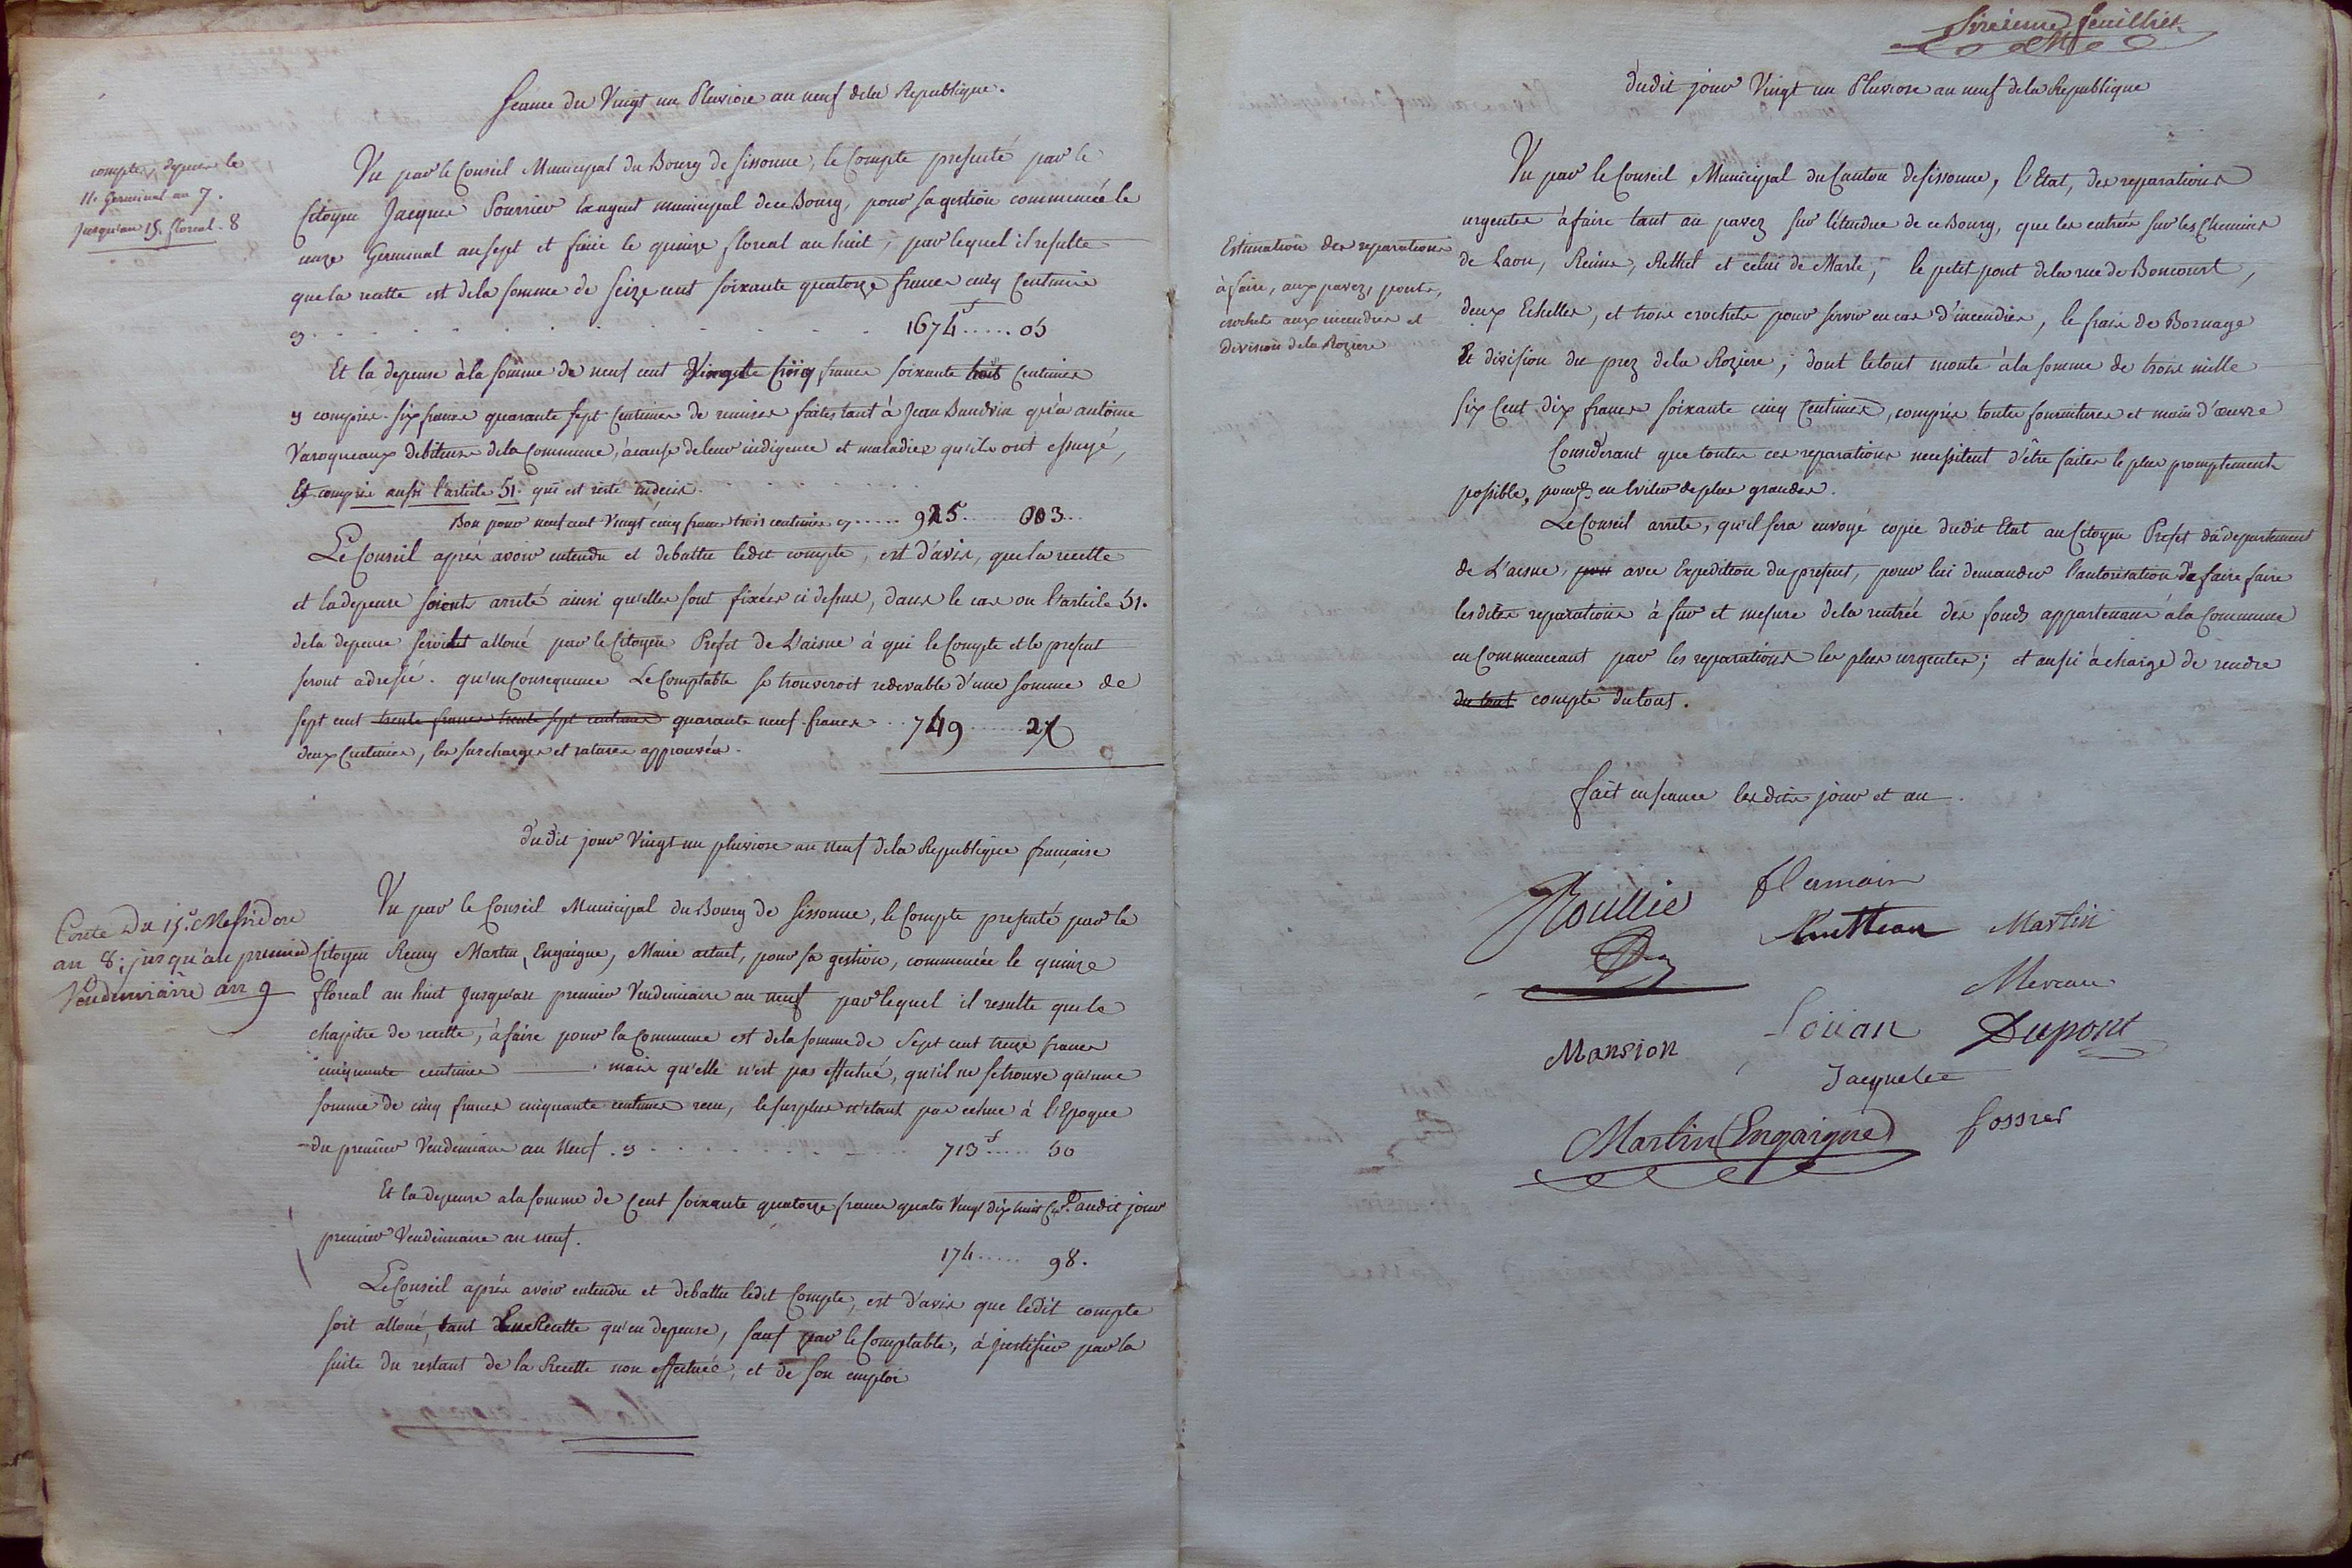 Seance du Vingt un Pluviose an neuf dela Republique.
compte, depuis le
11. Germinal an 7.
jusqu'au 15. floreal. 8
Vu par le Conseil Municipal du Bourg de Sissonne, le Compte presenté par le
Citoyen Jacques Exagent municipal dece Bourg, pour sa gestion commencée le
onze Germinal an sept et finie le quinze floreal an huit, par lequel il resulte
que la recette est dela somme de Seize cent soixante quatorze francs cinq Centimes
cy . . . . . . . . . . 1674f...... 05
Et la depense à la somme de neuf cent Vingt Cinq francs soixante trois Centimes
y compris six francs quarante sept Centimes de remises faites tant à Jean Baudvin qu'à antoine
Varoqueaux debiteurs dela Commune, àcause de leur indigence et maladies qu'ils ont essuyé,
Et compris aussi l'article 51. qui est resté indecis.
Bon pour neuf cent Vingt cinq francs trois centimes cy ..... 925..... 003...
Le Conseil après avoir entendu et debattu ledit compte, est d'avis, que la recette
et la depense soient arrêté ainsi qu'elles sont fixées ci dessus, dans le cas ou l'article 51.
dela depense seroit alloué par le Citoyen Prefet de L'aisne à qui le Compte et le present
seront adressé. qu'en Consequence Le Comptable se trouveroit redevable d'une somme de
sept cent trente francs trente sept centimes quarante neuf francs ... 749....... 2
deux Centimes, les surcharges et ratures approuvées.
Dudit jour Vingt un pluviose an neuf dela Republique francaise
Conte Du 15e. Messidore
an 8; jusqu'au premier
Vendemiaire an 9
Vu par le Conseil Municipal du Bourg de Sissonne, le Compte presenté par le
Citoyen Remy Martin, Engaigne, Maire actuel, pour sa gestion, commencée le quinze
floreal an huit jusqu'au premier Vendemiaire an neuf par lequel il resulte que le
chapitre de recette, à faire pour la Commune est dela somme de Sept cent treize francs
cinquante centimes ——— mais qu'elle n'est pas effectué, qu'il ne se trouve qu'une
somme de cinq francs cinquante centimes recu, le surplus n'etant pas echue à l'Epoque
du premier Vendemiaire an Neuf. cy . . . . . . . . 713f..... 50
Et la depense à la somme de Cent soixante quatorze francs quatre Vingt dix huit Cmes. audit jour
premier Vendemiaire an neuf.
174..... 98.
Le Conseil après avoir entendu et debattu ledit Compte, est d'avis que ledit compte
soit alloué, tant En Recette qu'en depense, sauf par le Comptable, à justifier par la
suite du restant de la Recette non effectuée, et de son emploi
Sixieme feuillet
Dudit jour Vingt un Pluviose an neuf dela Republique
Estimation des reparations
à faire, aux pavez, ponts,
crochets aux incendies et
division dela Roziere
Vu par le Conseil Municipal du Canton de Sissonne, l'Etat, des reparations
urgentes à faire tant au pavez sur l'etendue de ce Bourg, que les entrées sur les Chemins
de Laon, Reims, Rethel et celui de Marle, le petit pont dela rue de Boncourt,
deux Echelles, et trois crochets pour servir en cas d'incendies, le frais de Bornage
Et division du prez dela Roziere, dont le tout monte à la somme de trois mille
six Cent dix francs soixante cinq Centimes, compris toutes fournitures et main d'œuvre
Considerant que toutes ces reparations necessitent d'être faites le plus promptement
possible, pour en Eviter de plus grandes.
Le Conseil arrete, qu'il sera envoyé copie dudit Etat au Citoyen Prefet du departement
de L'aisne, avec Expedition du present, pour lui demander l'autorisation de faire faire
lesdites reparations à fur et mesure dela rentrée des fonds appartenans à la Commune
en Commencant par les reparations les plus urgentes; et aussi à charge de rendre
du tout compte du tout.
fait en seance lesdits jour et an.
Roullié
flamain
Martin
Mereau
Mansion
Dupont
Jacquelet
Martin Engaigne
fossier